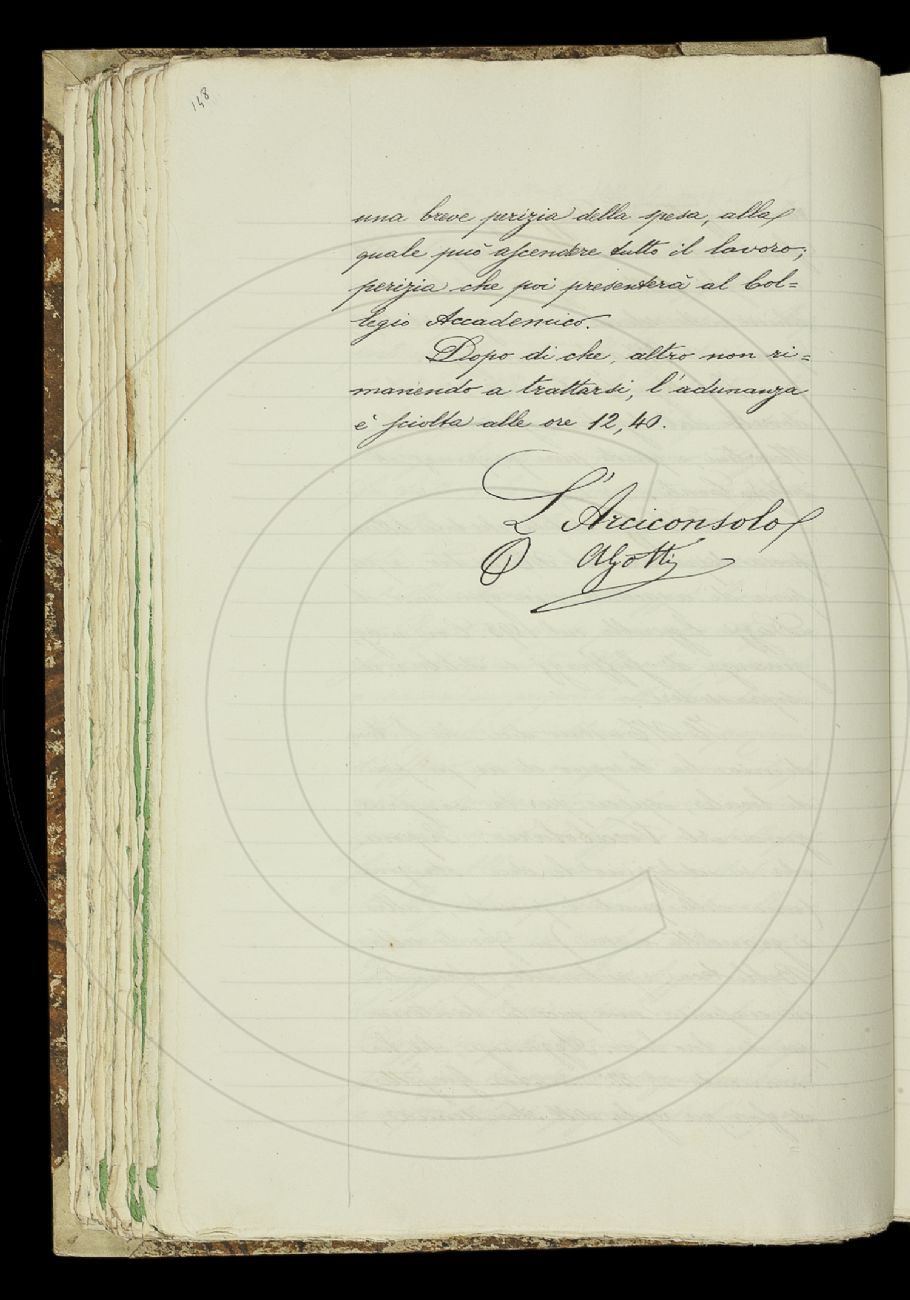 148
una breve perizia della spesa, alla
quale può ascendere tutto il lavoro;
perizia che poi presenterà al Col=
legio Accademico.
Dopo di che, altro non ri=
manendo a trattarsi, l'adunanza
è sciolta alle ore 12,40.
L'Arciconsolo